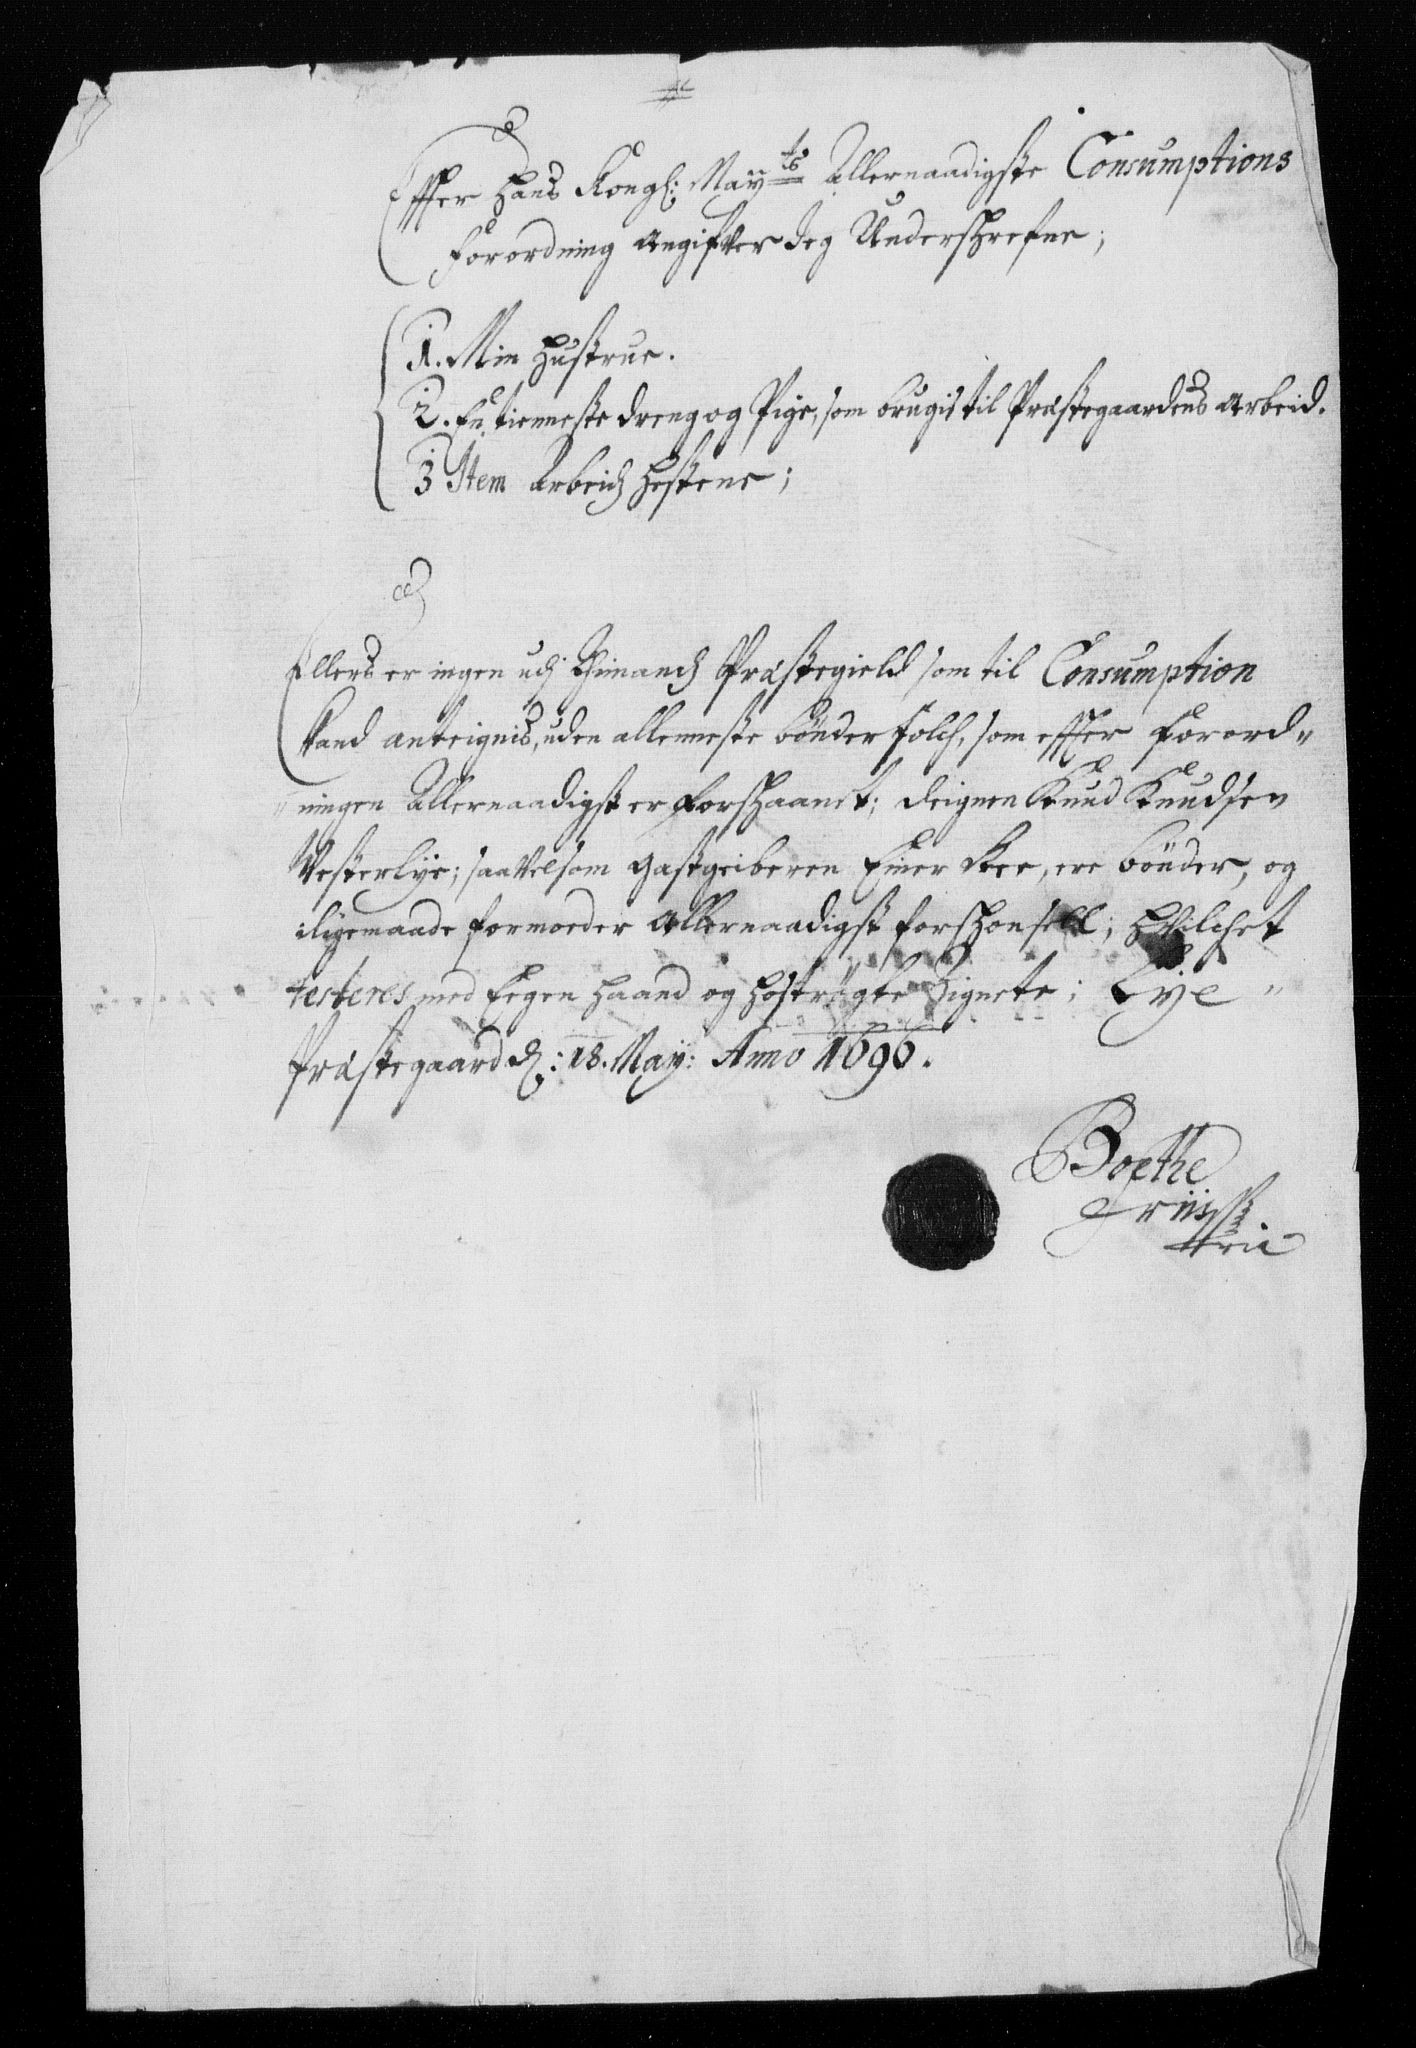 Effter Hans Kongl: May:ts Allernaadigste Consumptions
Forordning angifver Jeg Underschrefne;
1. Min Hustrue.
2. En tienneste dreng og Pige, som brugis til Præstegaardens Arbeid.
3 Item Arbeid hestene;
Ellers er ingen udj Præstegield som til Consumption
kand anteignis, uden alleneste bönder folch, som effter Forord„
„ningen Allernaadigst er forschaanet; deignen Knud Knudsen
Vesterlye; saavelsom gastgeiberen Einer, ere bönder, og
iligemaade formoeder Allernaadigst forschonsell; hvilchet
testeres med Eegen haand og hoströgte Signete; Lye„
Præstegaard d: 18. May: Anno 1696.
Boethe
Friiss